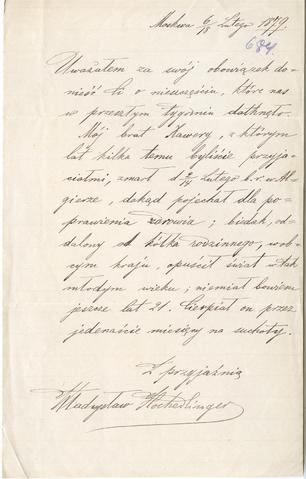 Moskwa 6/18 Lutego 1879.
684.
Uważałem za swój obowiązek do-
nieść Ci o nieszczęściu, które nas
w przeszłym tygodniu dotknęło.
Mój brat Xawery, z którym
lat kilka temu byliście przyja-
ciółmi, zmarł d. Lutego b. r. w Al-
gierze, dokąd pojechał dla po-
prawienia zdrowia; biedak, od-
dalony od kółka rodzinnego, w ob-
cym kraju, opuścił świat w tak
młodym wieku; niemiał bowiem
jeszcze lat 21. Cierpiał on przez
jedenaście miesięcy na suchoty.
Z przyjaźnią
Władysław Hochedlinger